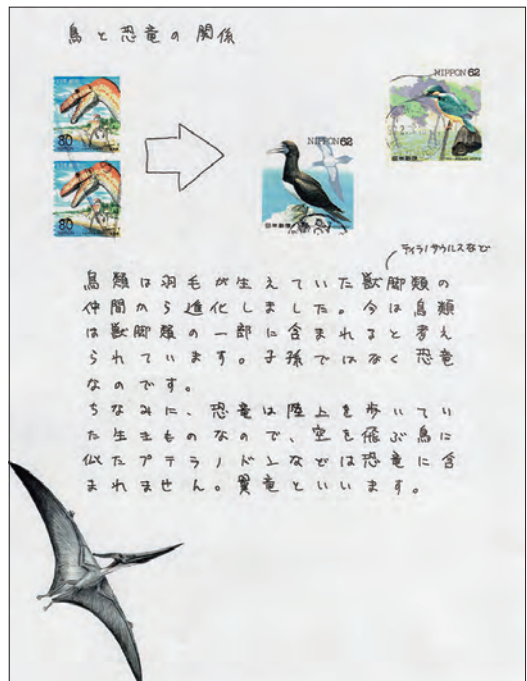 鳥と恐竜の関係
80
80
NIPPON 62
日本郵便
NIPPON 62
日本郵便
ティラノサウルスなど
鳥類は羽毛が生えていた獣脚類の
仲間から進化しました。今は鳥類
は獣脚類の一部に含まれると考え
られています。子孫ではなく恐竜
なのです。
ちなみに、恐竜は陸上を歩いてい
た生きものなので、空を飛ぶ鳥に
似たプテラノドンなどは恐竜に含
まれません。翼竜といいます。